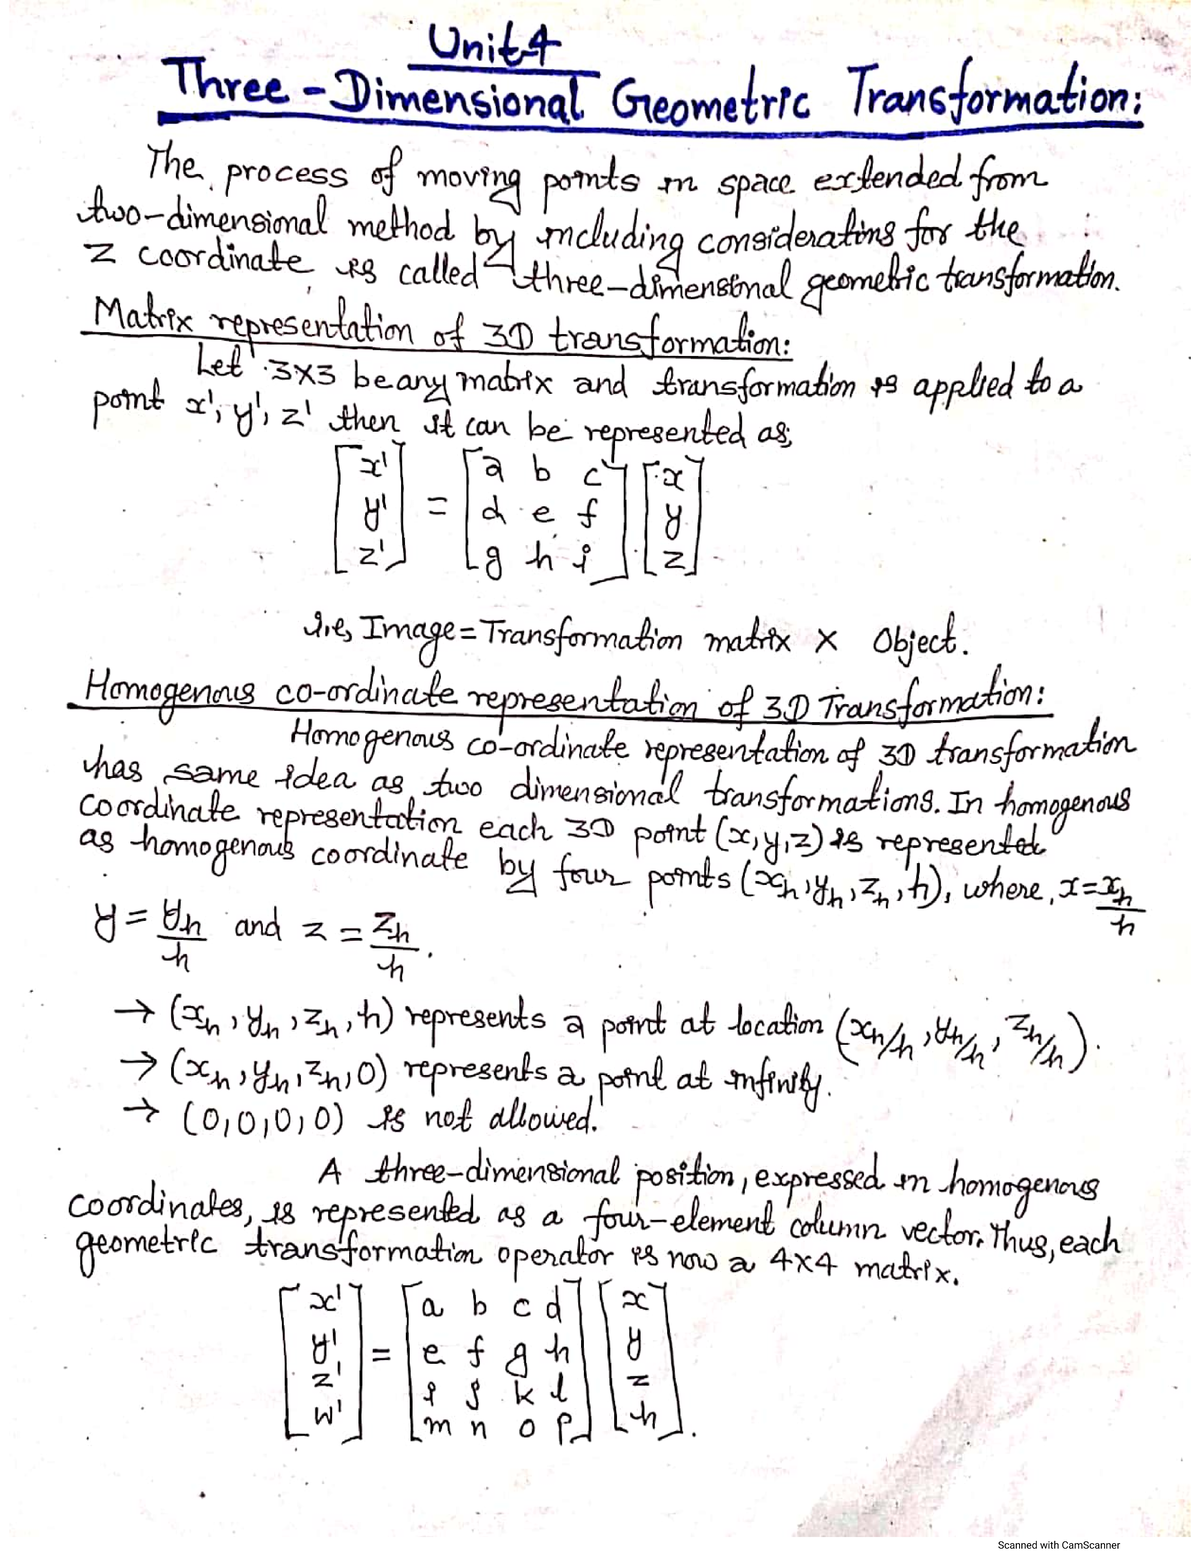 Unit 4
Three-Dimensional Geometric Transformation:
The process of moving points in space extended from
two-dimensional method by including considerations for the
z coordinate is called three-dimensional geometric transformation.
Matrix representation of 3D transformation:
Let 3×3 be any matrix and transformation is applied to a
point x', y', z' then it can be represented as;
[x' y' z'] = [a b c; d e f; g h i] [x y z]
i.e, Image = Transformation matrix × Object.
Homogenous co-ordinate representation of 3D Transformation:
Homogenous co-ordinate representation of 3D transformation
has same idea as two dimensional transformations. In homogenous
coordinate representation each 3D point (x,y,z) is represented
as homogenous coordinate by four points (xₕ, yₕ, zₕ, h), where, x = xₕ/h
y = yₕ/h and z = zₕ/h.
→ (xₕ, yₕ, zₕ, h) represents a point at location (xₕ/h, yₕ/h, zₕ/h).
→ (xₕ, yₕ, zₕ, 0) represents a point at infinity.
→ (0,0,0,0) is not allowed.
A three-dimensional position, expressed in homogenous
coordinates, is represented as a four-element column vector. Thus, each
geometric transformation operator is now a 4×4 matrix.
[x' y' z' w'] = [a b c d; e f g h; i j k l; m n o p] [x y z h].
Scanned with CamScanner